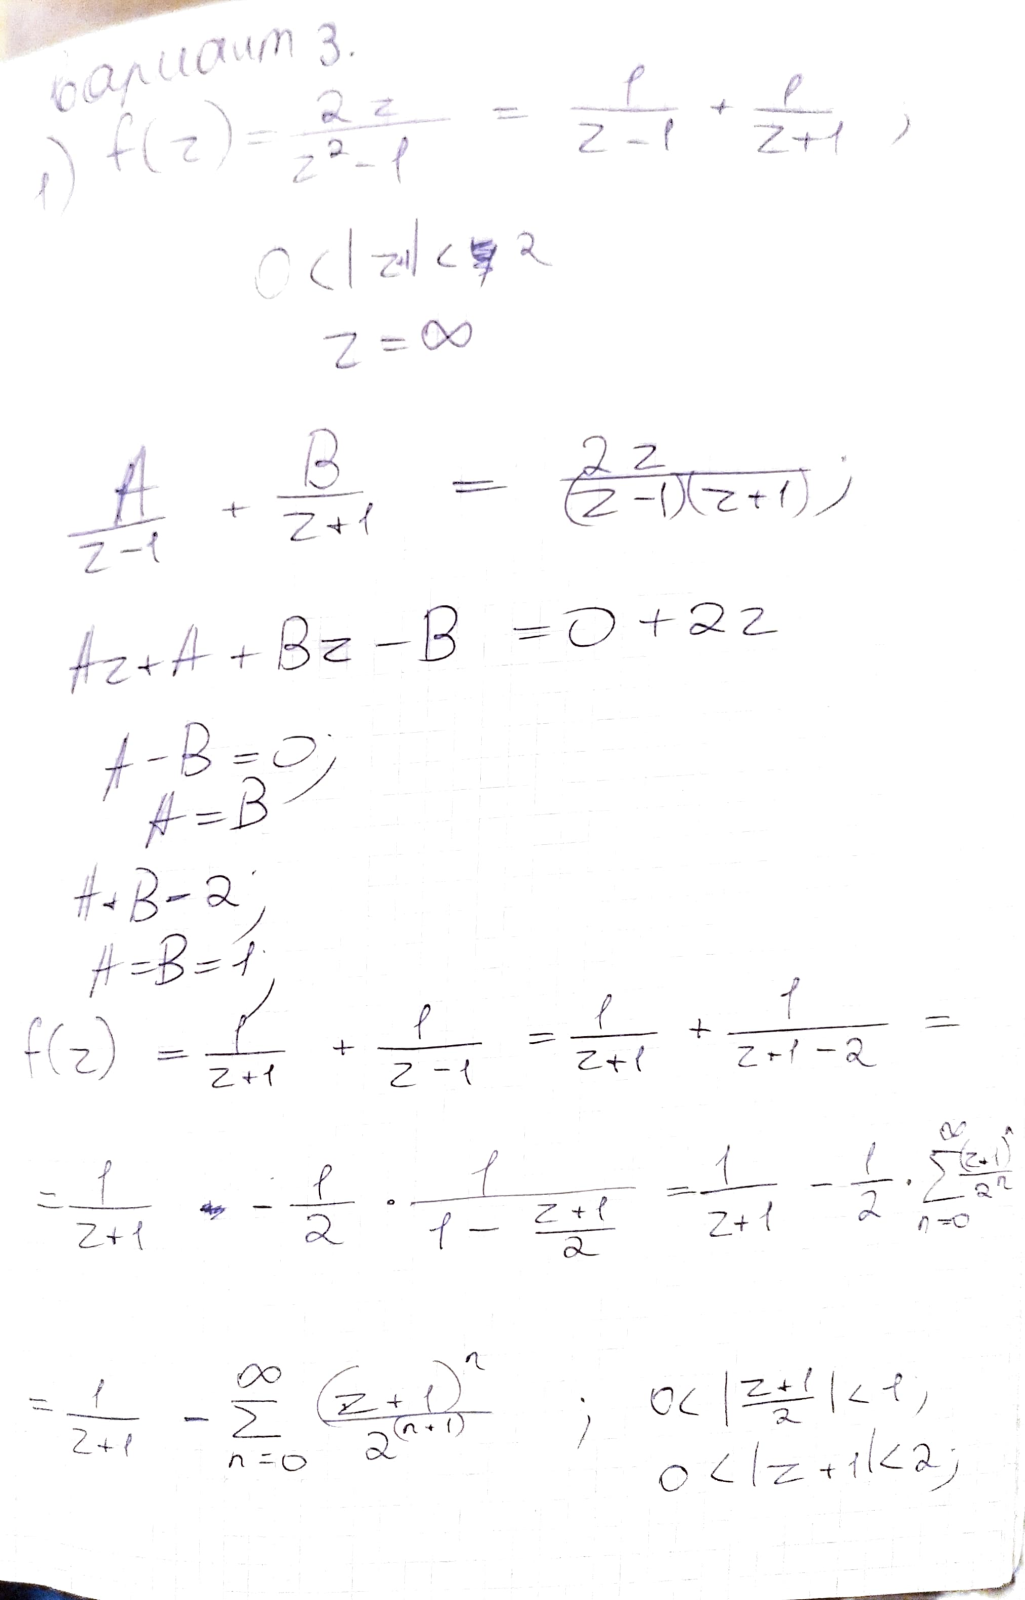 Вариант 3.
1) f(z) = \frac{2z}{z^2-1} = \frac{1}{z-1} + \frac{1}{z+1} ;
0<|z+1|<2
z=∞
\frac{A}{z-1} + \frac{B}{z+1} = \frac{2z}{(z-1)(z+1)} ;
Az+A+Bz-B = 0+2z
A-B=0;
A=B
A+B-2;
A=B=1;
f(z) = \frac{1}{z+1} + \frac{1}{z-1} = \frac{1}{z+1} + \frac{1}{z+1-2} =
= \frac{1}{z+1} - \frac{1}{2} · \frac{1}{1-\frac{z+1}{2}} = \frac{1}{z+1} - \frac{1}{2} · \sum_{n=0}^{∞} \frac{(z+1)^n}{2^n}
= \frac{1}{z+1} - \sum_{n=0}^{∞} \frac{(z+1)^n}{2^{(n+1)}} ; 0<|\frac{z+1}{2}|<1;
0<|z+1|<2;